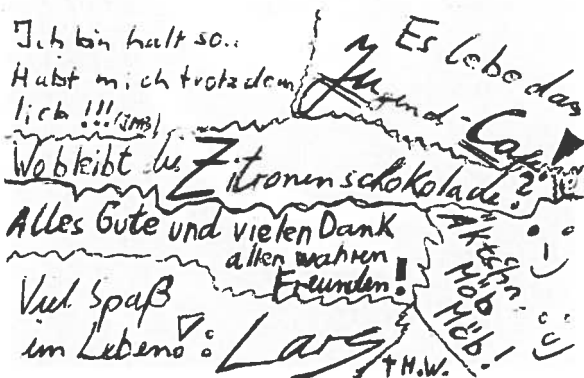 Ich bin halt so..
Habt mich trotzdem
lieb !!! (JMB)
Es lebe das
Jugend-Café
Wo bleibt die Zitronenschokolade?
Alles Gute und vielen Dank
allen wahren
Freunden!
Äktschn
Möb
Möb!
Viel Spaß
im Leben!
Lars
† H.W.